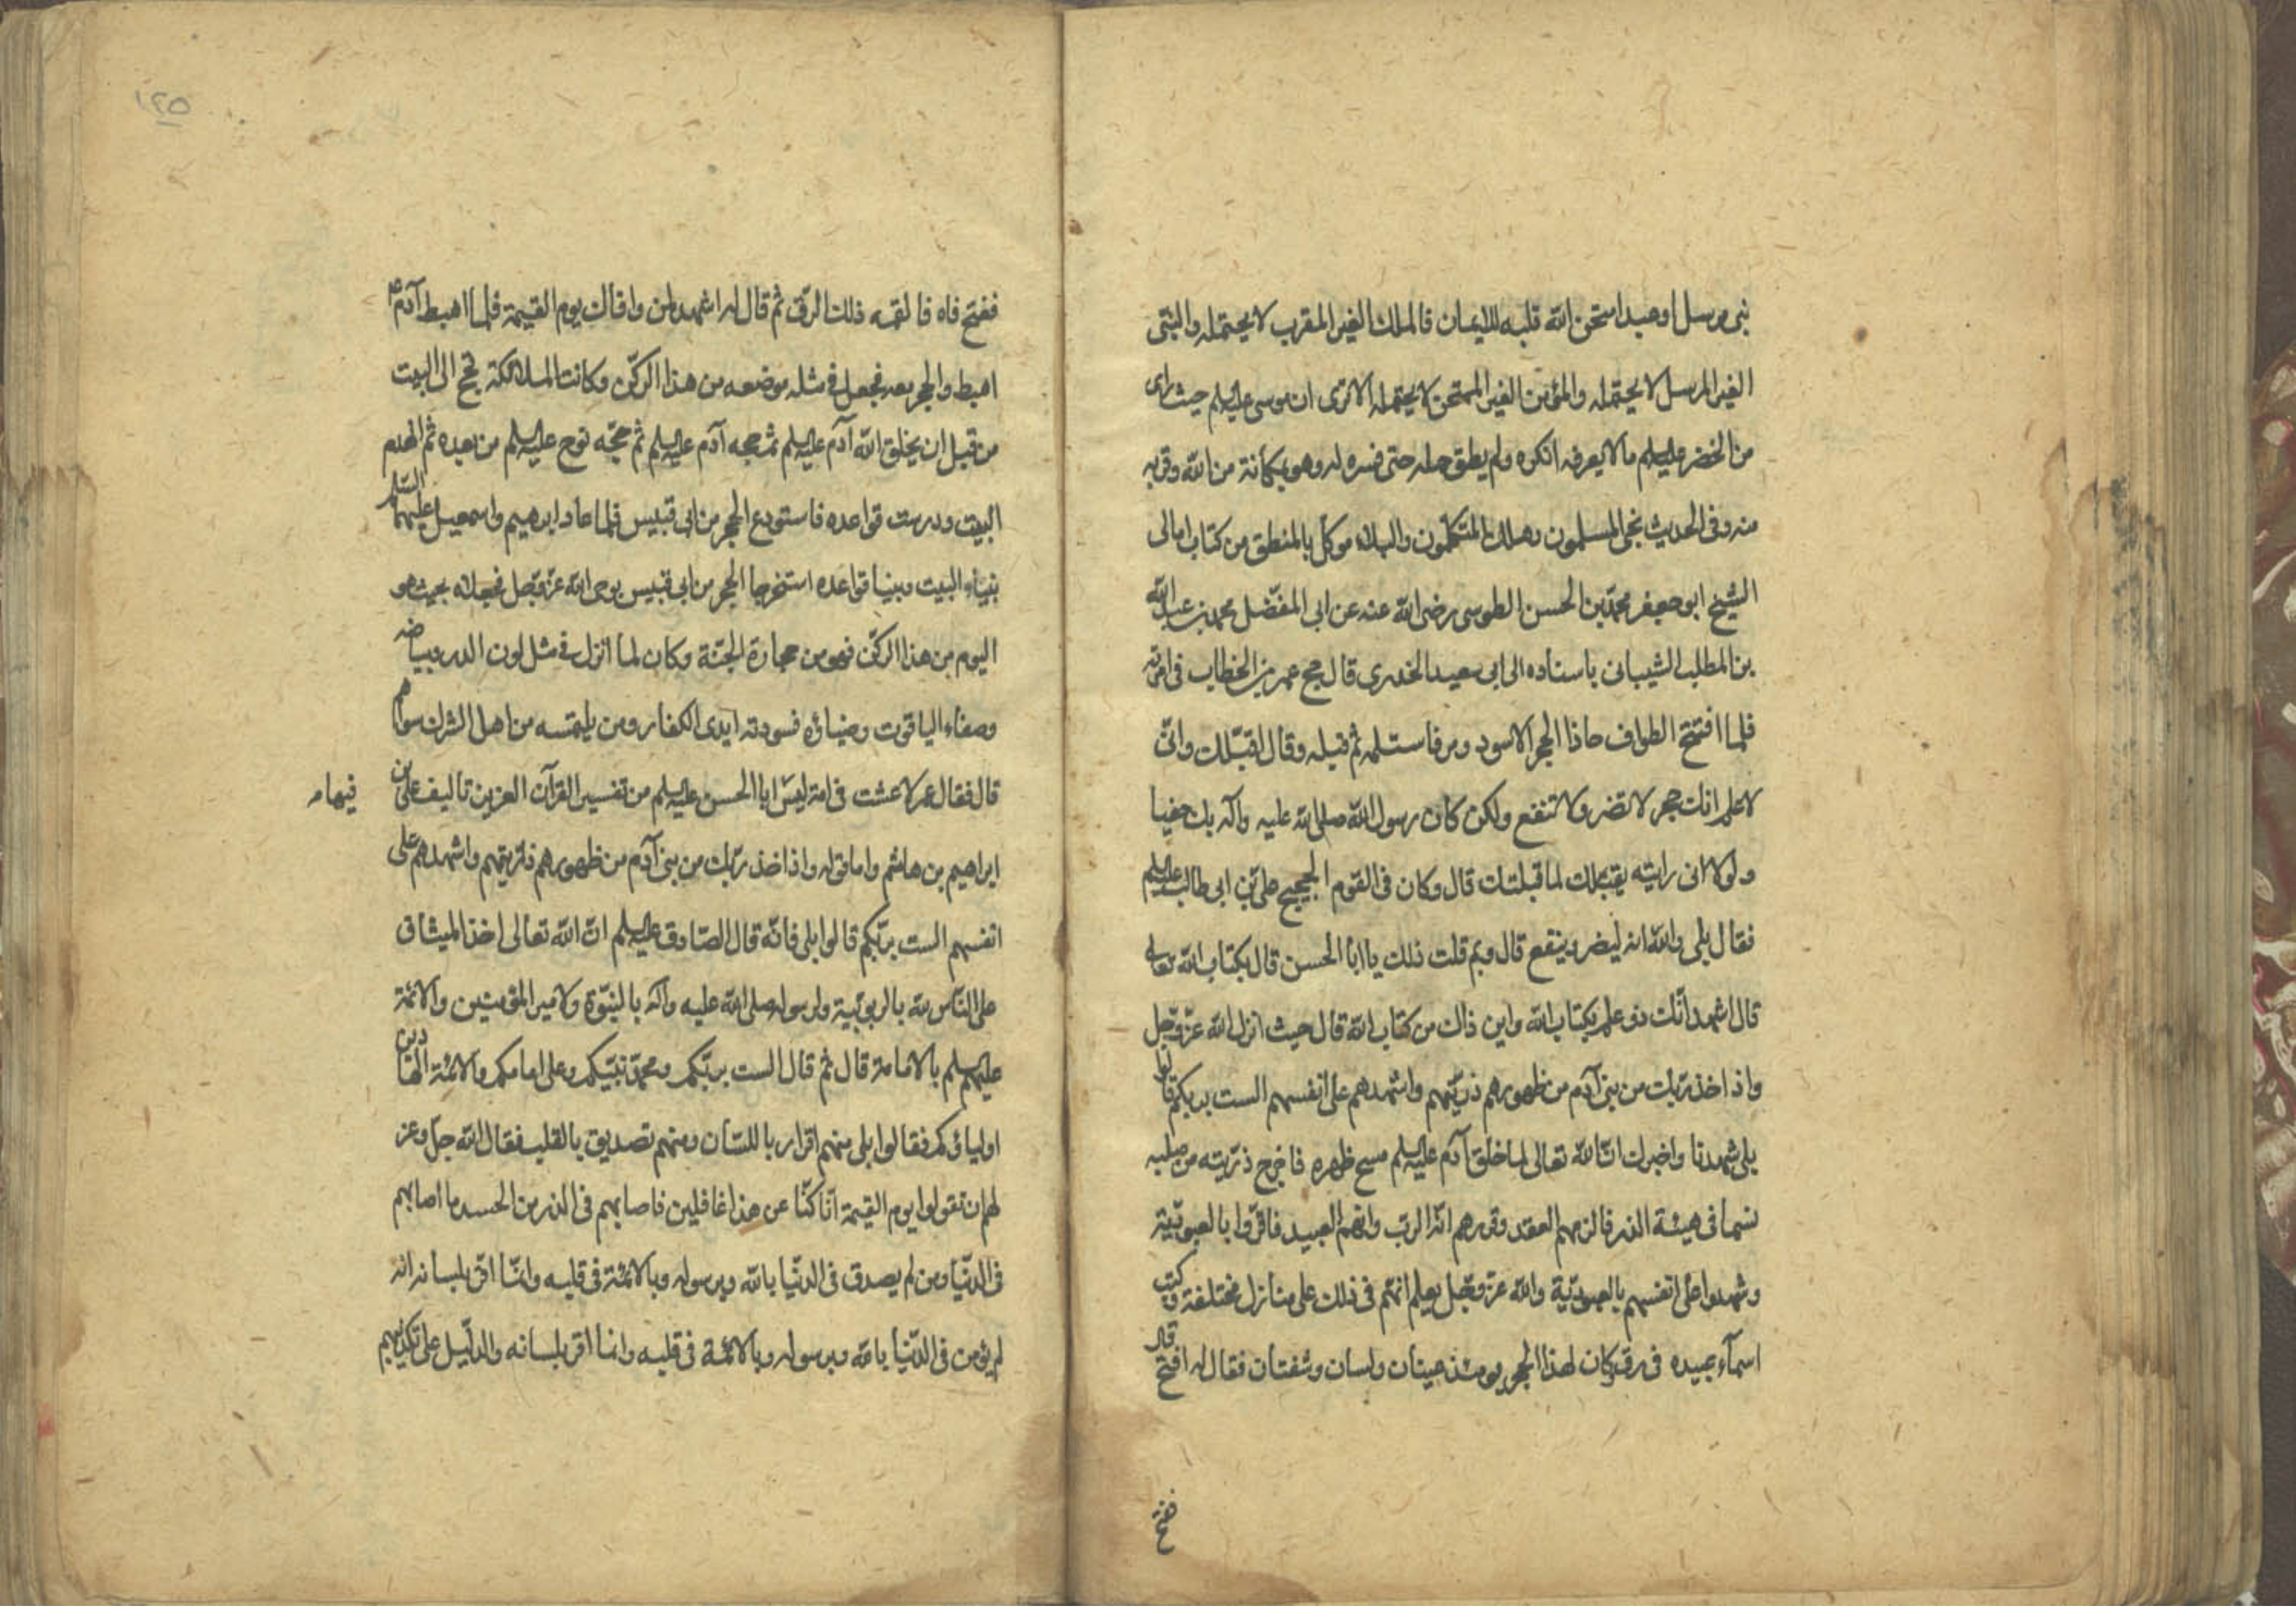 نبى مرسل او عبد امتحن الله قلبه للايمان فالملك الغير المقرب لا يحتمله والنبى
الغير المرسل لا يحتمله والمؤمن الغير الممتحن لا يحتمله الا ترى ان موسى عليه السلم حيث راى
من الخضر عليه السلم ما لا يعرفه انكره ولم يطق حمله حتى فسره له وهو بمكانة من الله وقربه
منه وفى الحديث نجى المسلمون وهلك المتكلمون والبلاء موكل بالمنطق من كتاب امالى
الشيخ ابو جعفر محمد بن الحسن الطوسى رضى الله عنه عن ابى المفضل محمد بن عبد الله
بن المطلب الشيبانى باسناده الى ابى سعيد الخدرى قال حج عمر بن الخطاب فى امرته
فلما افتتح الطواف حاذا الحجر الاسود ومر فاستلمه ثم قبله وقال اقبّلك وانّى
لاعلم انك حجر لا تضر ولا تنفع ولكن كان رسول الله صلى الله عليه وآله بك حفيا
ولولا انى رايته يقبلك لما قبلتك قال وكان فى القوم الحجيج على بن ابى طالب عليه السلم
فقال بلى والله انه ليضر وينفع قال وبم قلت ذلك يا ابا الحسن قال بكتاب الله تعالى
قال اشهد انّك ذو علم بكتاب الله واين ذلك من كتاب الله قال حيث انزل الله عزّ وجل
واذ اخذ ربك من بنى آدم من ظهورهم ذريّتهم واشهدهم على انفسهم الست بربكم قالوا
بلى شهدنا واخبرك انّ الله تعالى لما خلق آدم عليه السلم مسح ظهره فاخرج ذرّيته من صلبه
نسما فى هيئة الذر فالزمهم العقد وقررهم انّه الرب وانهم العبيد فاقرّوا بالعبوديّة
وشهدوا على انفسهم بالعبوديّة والله عزّ وجل يعلم انهم فى ذلك على منازل مختلفة وكتب
اسمآء عبيده فى رق وكان لهذا الحجر يومئذ عينان ولسان وشفتان فقال له افتح قال
فتح
١٢٥
ففتح فاه فالقمه ذلك الرّق ثم قال له اشهد لمن وافاك يوم القيمة فلما اهبط آدم ع
اهبط والحجر معه فجعل فى مثله موضعه من هذا الركن وكانت الملائكة تحج الى البيت
من قبل ان يخلق الله آدم عليه السلم ثم حجه آدم عليه السلم ثم حجّه نوح عليه السلم من بعده ثم انهدم
البيت ودرست قواعده فاستودع الحجر من ابى قبيس فلما عاد ابرهيم واسمعيل عليهما السلم
بناء البيت وبنيا قواعده استخرجا الحجر من ابى قبيس بوحى الله عزّ وجل فجعلاه بحيث هو
اليوم من هذا الركن فهو من حجارة الجنّة وكان لما انزل فى مثل لون الدر وبياضه
وصفاء الياقوت وضياؤه فسودته ايدى الكفار ومن يلتمسه من اهل الشرك سواهم
قال فقال عمر لا عشت فى امة ليس ابا الحسن عليه السلم من تفسير القرآن العزيز تاليف على بن
فيها
ابراهيم بن هاشم واما قوله واذ اخذ ربّك من بنى آدم من ظهورهم ذريتهم واشهدهم على
انفسهم الست بربّكم قالوا بلى فانّه قال الصّادق عليه السلم انّ الله تعالى اخذ الميثاق
على النّاس لله بالربوبيّة ولرسوله صلى الله عليه وآله بالنبوّة ولامير المؤمنين والائمّة
عليهم السلم بالامامة قال ثم قال الست بربّكم ومحمّد نبيّكم وعلى امامكم والائمّة الهادين
اولياؤكم فقالوا بلى منهم اقرار باللسّان ومنهم تصديق بالقلب فقال الله جلّ وعز
لهم ان تقولوا يوم القيمة انّا كنّا عن هذا غافلين فاصابهم فى الذر من الحسد ما اصابهم
فى الدّنيا ومن لم يصدق فى الدنّيا بالله وبرسوله وبالائمّة فى قلبه وانّما اقر بلسانه انه
لم يؤمن فى الدّنيا بالله وبرسوله وبالائمّة فى قلبه وانما اقر بلسانه والدّليل على تكذيبهم